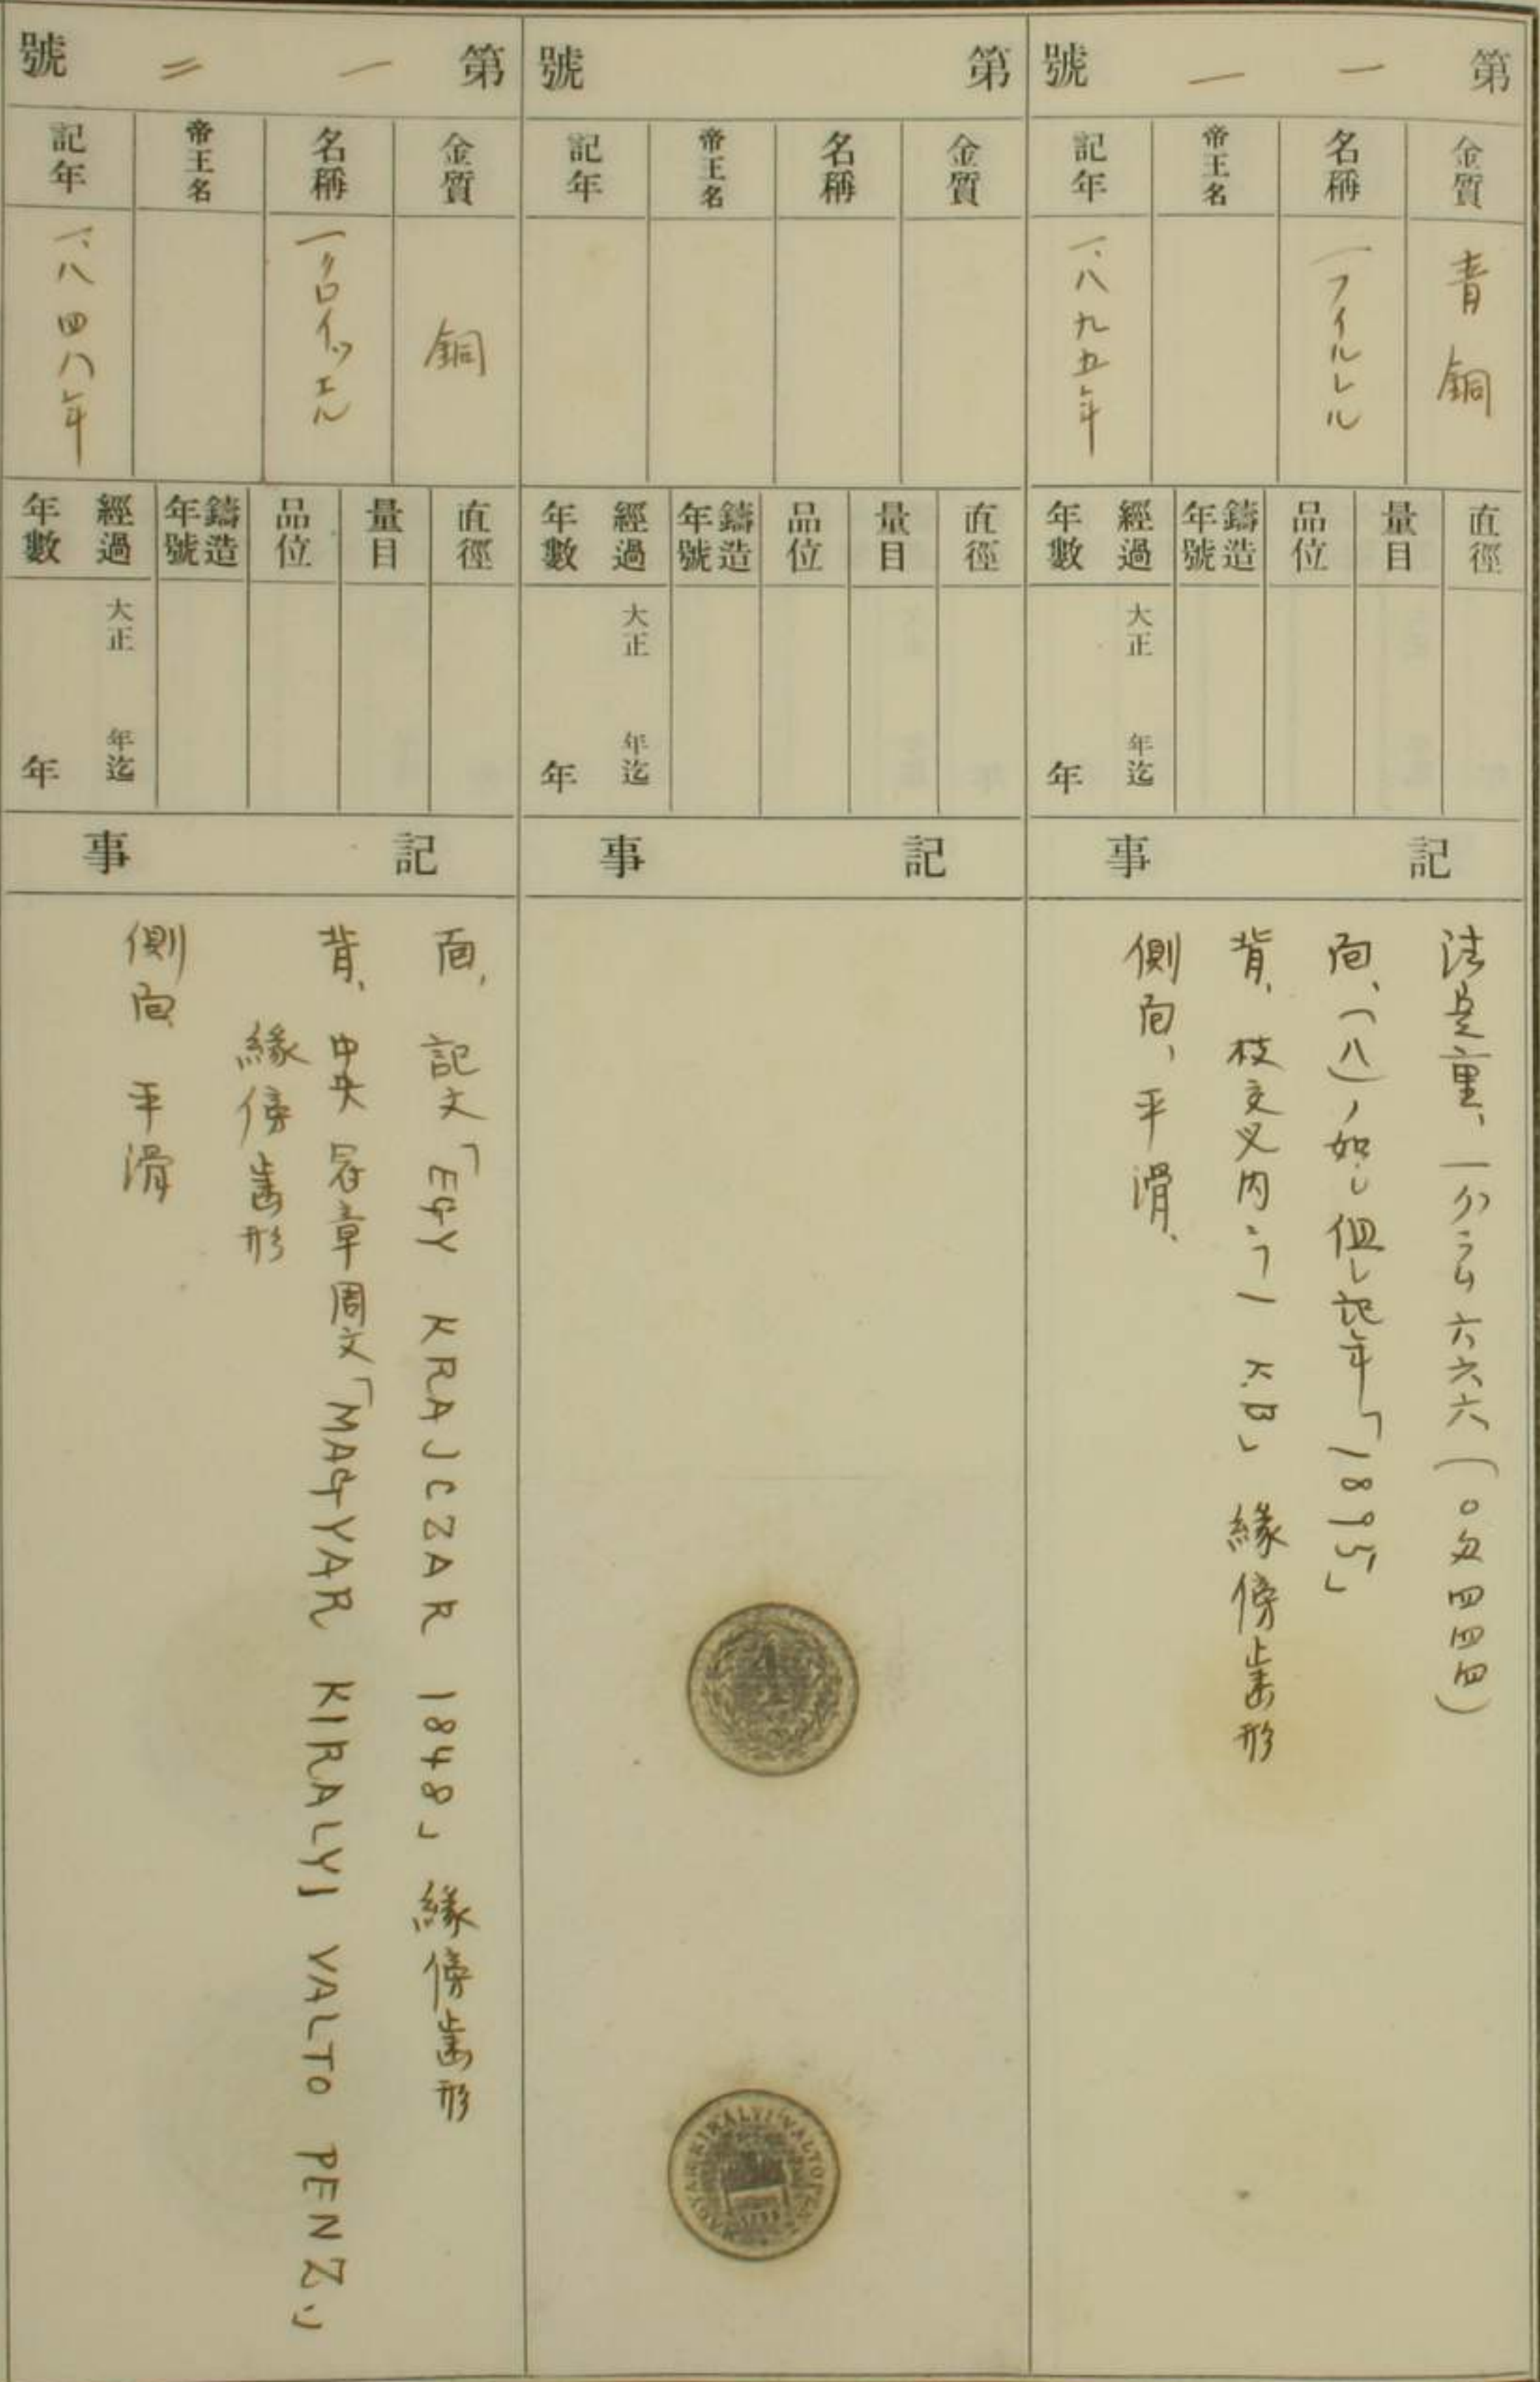 第一一號
金質
青銅
名稱
一フイルレル
帝王名
記年
一、八九五年
直徑
量目
品位
鑄造年號
經過年數
大正 年迄
年
記事
法定量、一グラム六六六(〇匁四四四)
面、(八)ノ如シ但シ記年「1895」
背、枝交叉内ニ「一 K.B」 緣傍齒形
側面、平滑、
第 號
金質
名稱
帝王名
記年
直徑
量目
品位
鑄造年號
經過年數
大正 年迄
年
記事
MAGYAR KIRÁLYI VALTO PENZ
第一二號
金質
銅
名稱
一クロイツエル
帝王名
記年
一、八四八年
直徑
量目
品位
鑄造年號
經過年數
大正 年迄
年
記事
面、記文「EGY KRAJCZAR 1848」緣傍齒形
背、中央冠章周文「MAGYAR KIRALYI VALTO PENZ」
緣傍齒形
側面 平滑